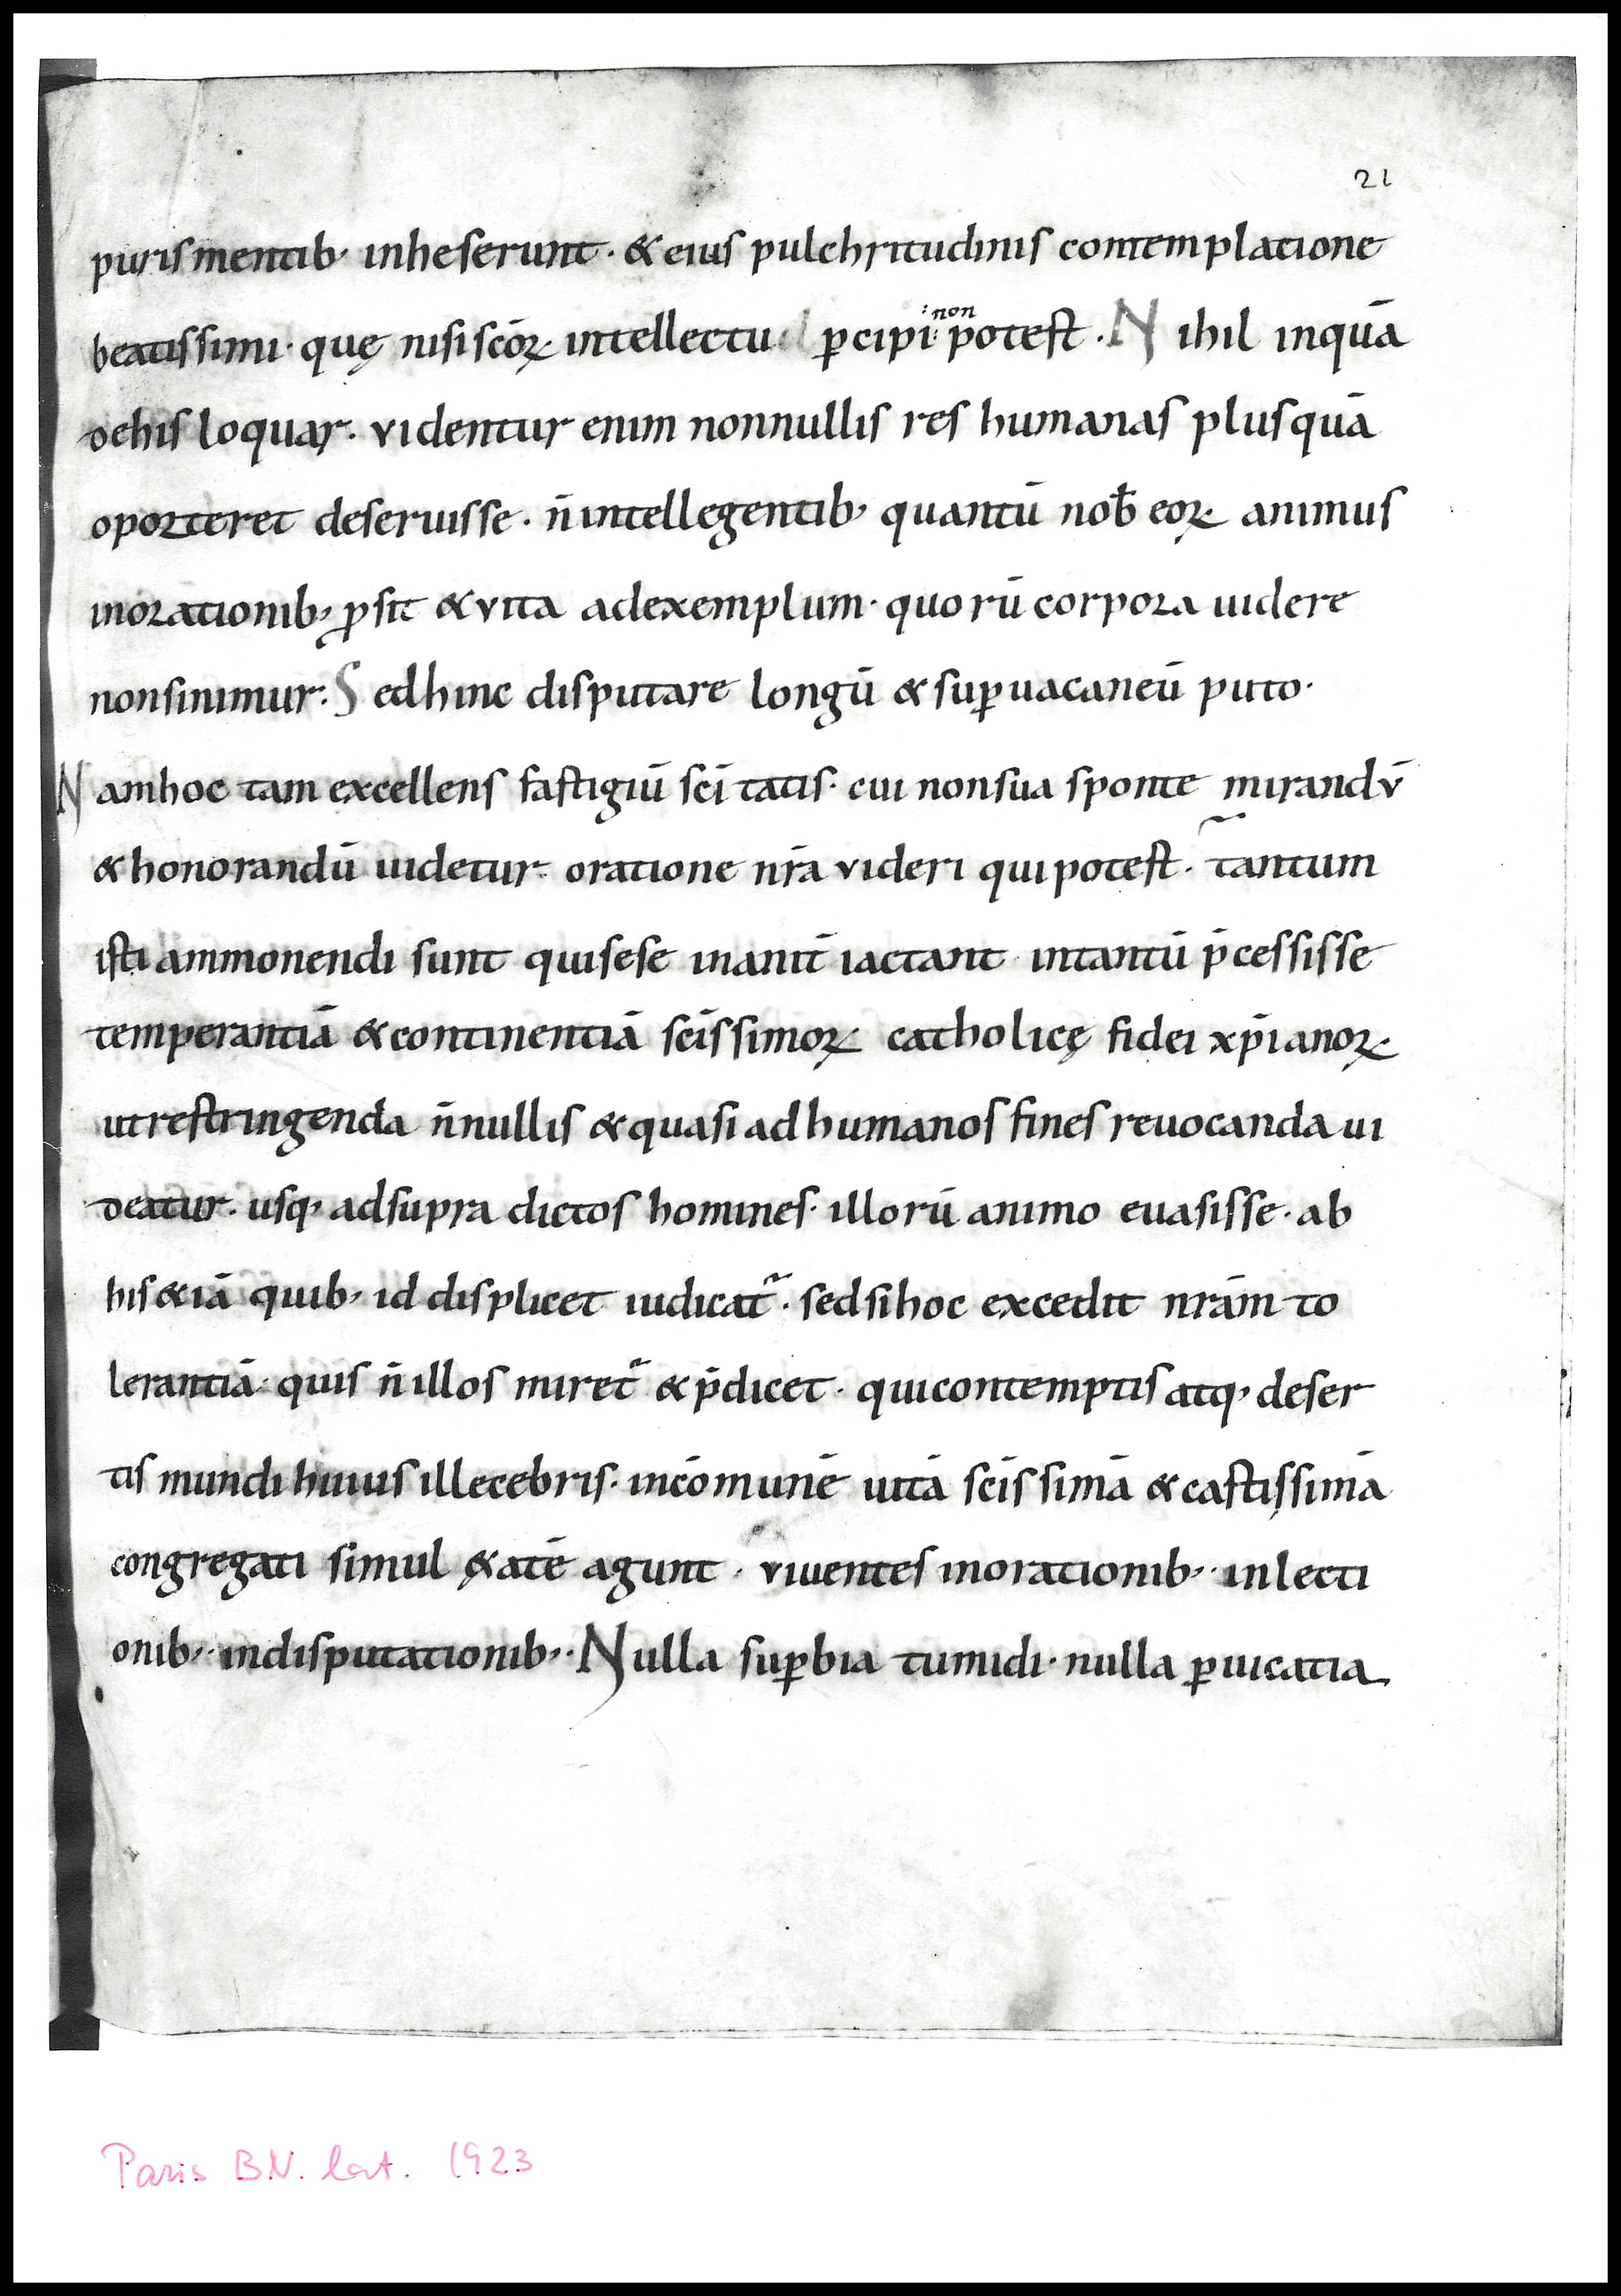 21
puris mentib; inheserunt · & eius pulchritudinis contemplatione
beatissimi · quę nisi scōꝝ intellectu ꝑcipi · non potest · Nihil inquā
de his loquar · videntur enim nonnullis res humanas plusquā
oporteret deseruisse · n̄ intellegentib; quantū nob̄ eoꝝ animus
in orationib; ꝓsit & vita ad exemplum · quorū corpora uidere
non sinimur · Sed hinc disputare longū & suꝑuacaneū puto ·
Nam hoc tam excellens fastigiū sc̄itatis · cui non sua sponte mirandū
& honorandū uidetur · oratione nr̄a videri qui potest · tantum
isti ammonendi sunt qui sese inanit̄ iactant · in tantū p̄cessisse
temperantiā & continentiā sc̄issimoꝝ catholicę fidei xp̄ianoꝝ ·
ut restringenda n̄nullis & quasi ad humanos fines reuocanda ui
deatur · usq; ad supra dictos homines · illorū animo euasisse · ab
his &iā quib; id displicet iudicat᷑ · sed si hoc excedit nr̄am to
lerantiā · quis n̄ illos miret᷑ & p̄dicet · qui contemptis atq; deser
tis mundi huius illecebris · in cōmunē uitā sc̄issimā & castissimā
congregati simul ę&atē agunt · viventes in orationib; · in lecti
onib; · in disputationib; · Nulla suꝑbia tumidi · nulla ꝑuicatia
Paris BN. lat. 1923